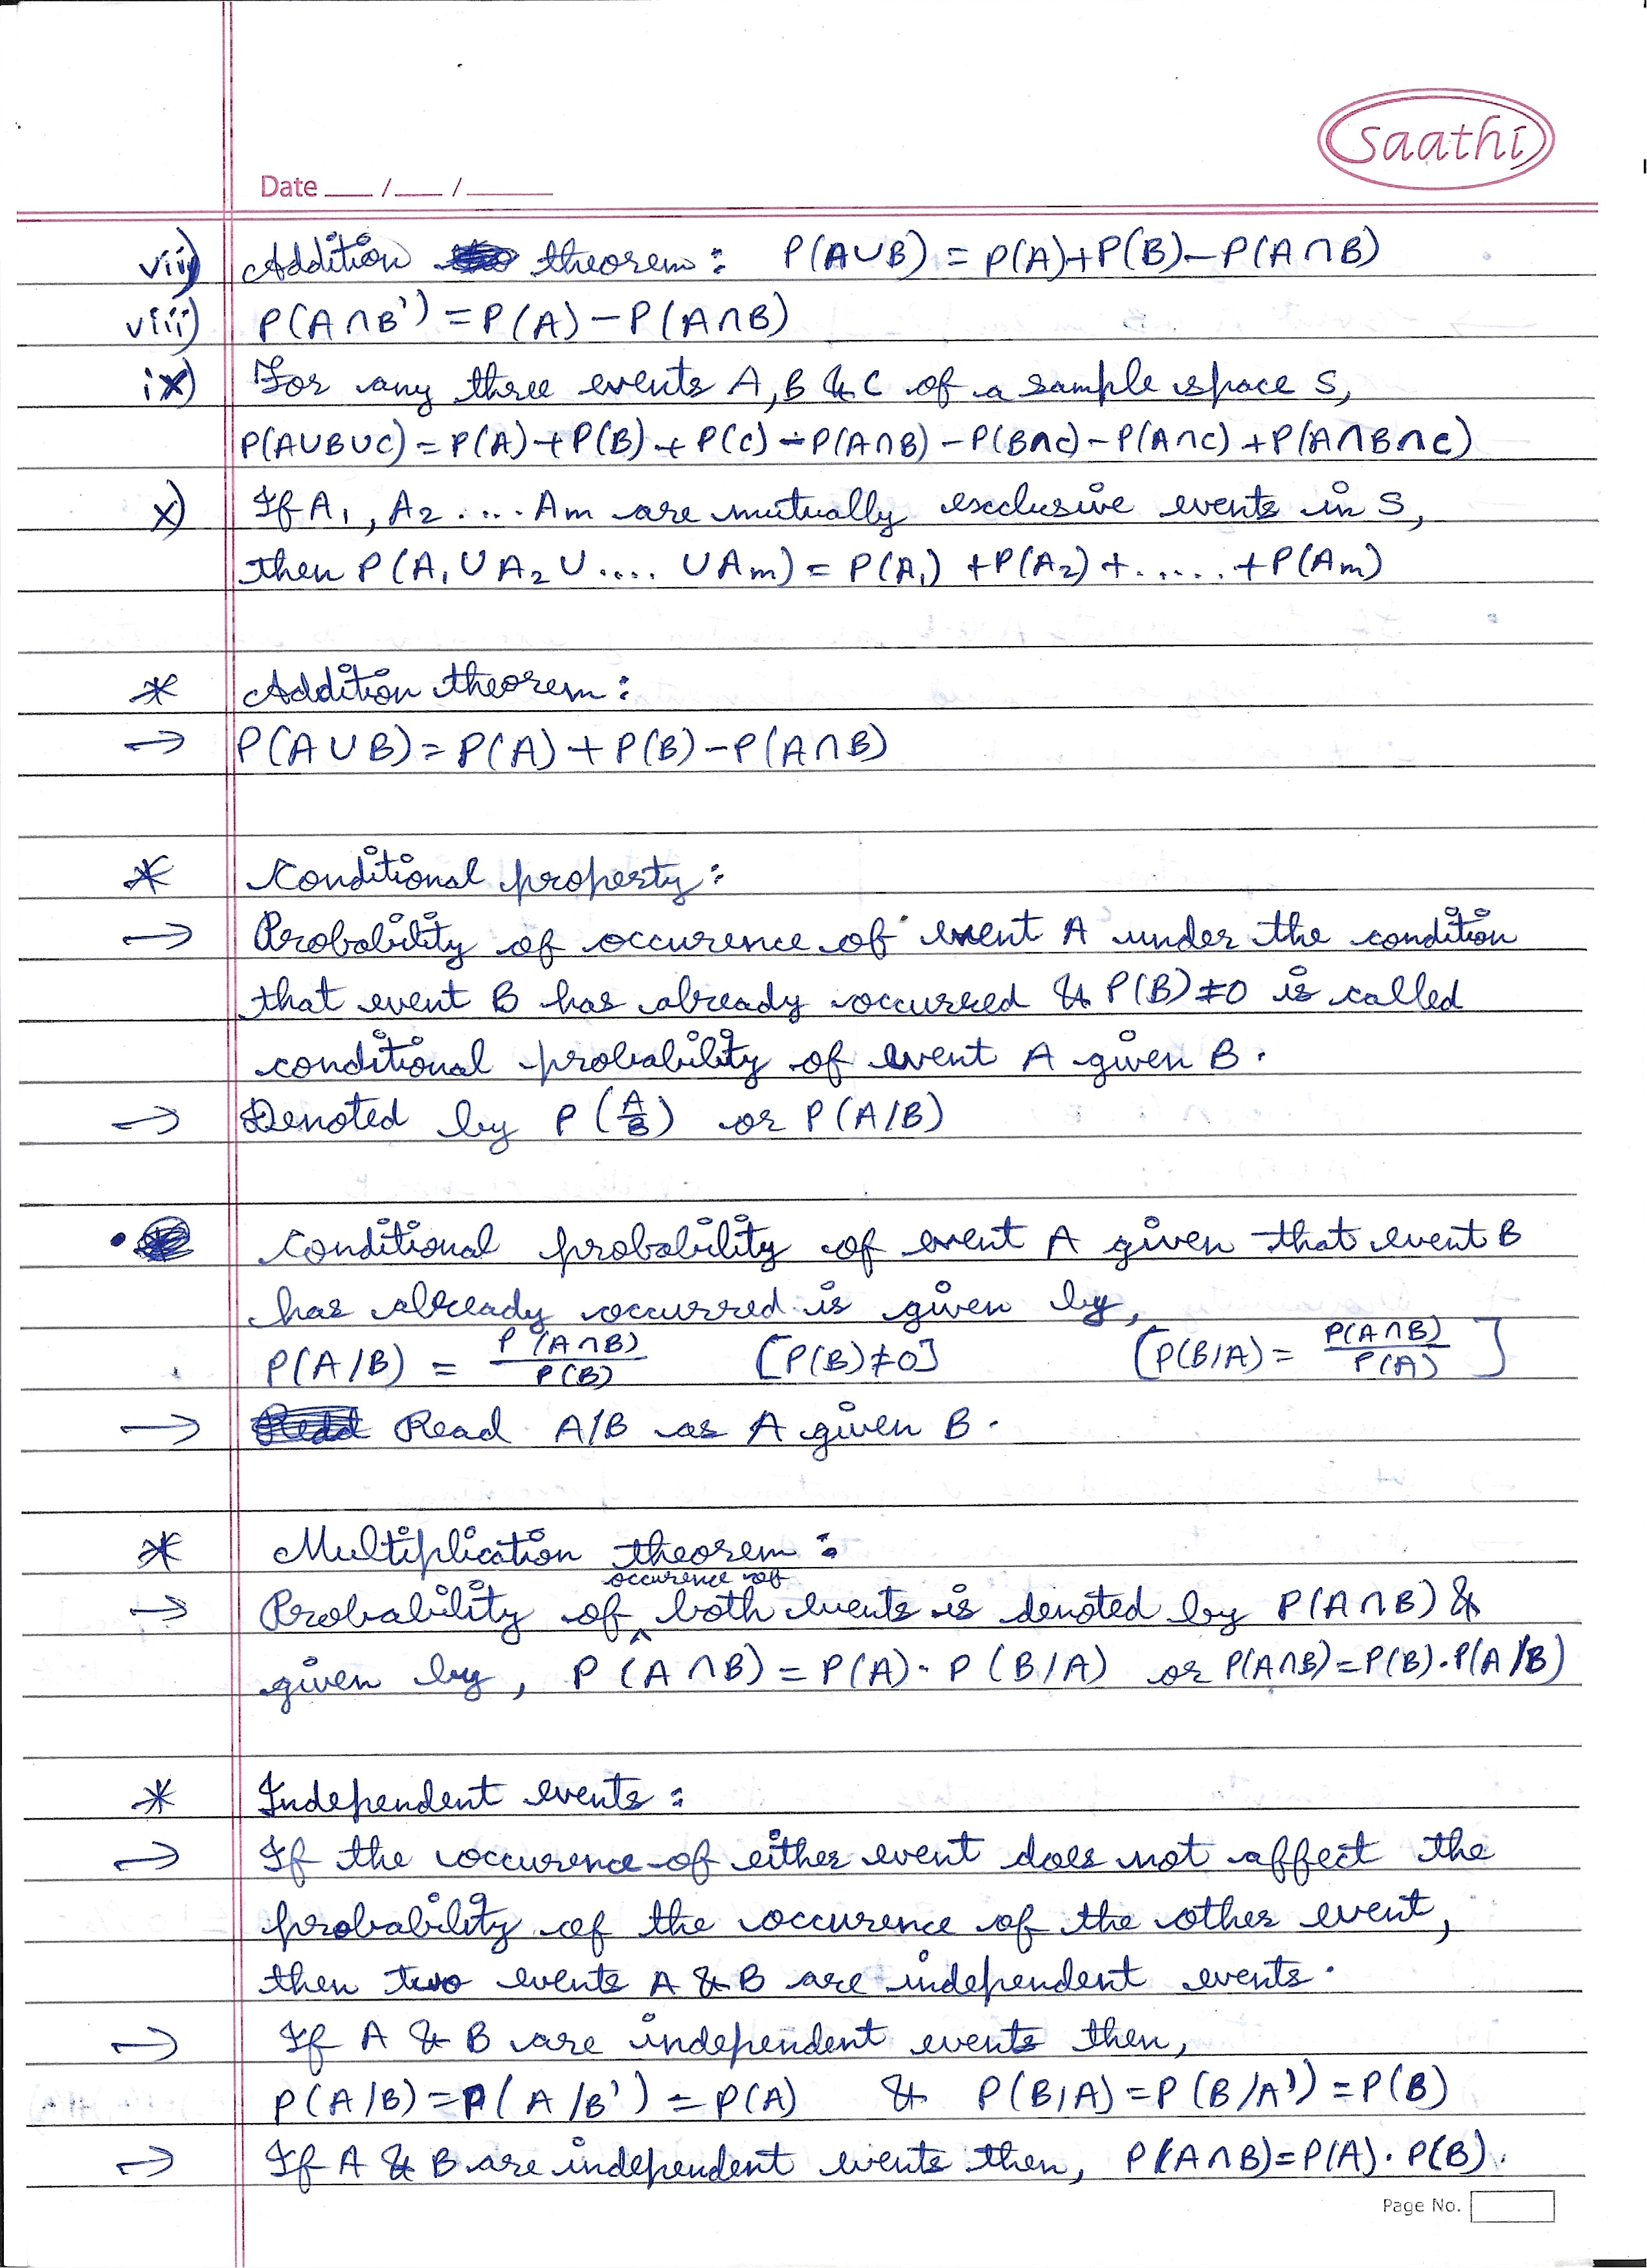 Saathi
Date ___ /___ /______
vii) Addition theorem: P(A∪B) = P(A)+P(B)-P(A∩B)
viii) P(A∩B') = P(A) - P(A∩B)
ix) For any three events A, B & C of a sample space S,
P(A∪B∪C) = P(A) + P(B) + P(C) - P(A∩B) - P(B∩C) - P(A∩C) + P(A∩B∩C)
x) If A₁, A₂ .... Am are mutually exclusive events in S,
then P(A₁ ∪ A₂ ∪ .... ∪ Am) = P(A₁) + P(A₂) + ..... + P(Am)
* Addition theorem:
→ P(A∪B) = P(A) + P(B) - P(A∩B)
* Conditional property:
→ Probability of occurence of event A under the condition
that event B has already occurred & P(B)≠0 is called
conditional probability of event A given B.
→ Denoted by P(A/B) or P(A/B)
• Conditional probability of event A given that event B
has already occurred is given by,
P(A/B) = P(A∩B)/P(B) [P(B)≠0] [P(B/A) = P(A∩B)/P(A)]
→ Read A/B as A given B.
* Multiplication theorem:
→ Probability of occurence of both events is denoted by P(A∩B) &
given by, P(A∩B) = P(A) · P(B/A) or P(A∩B) = P(B) · P(A/B)
* Independent events:
→ If the occurence of either event does not affect the
probability of the occurence of the other event,
then two events A & B are independent events.
→ If A & B are independent events then,
P(A/B) = P(A/B') = P(A) & P(B/A) = P(B/A') = P(B)
→ If A & B are independent events then, P(A∩B) = P(A) · P(B).
Page No.